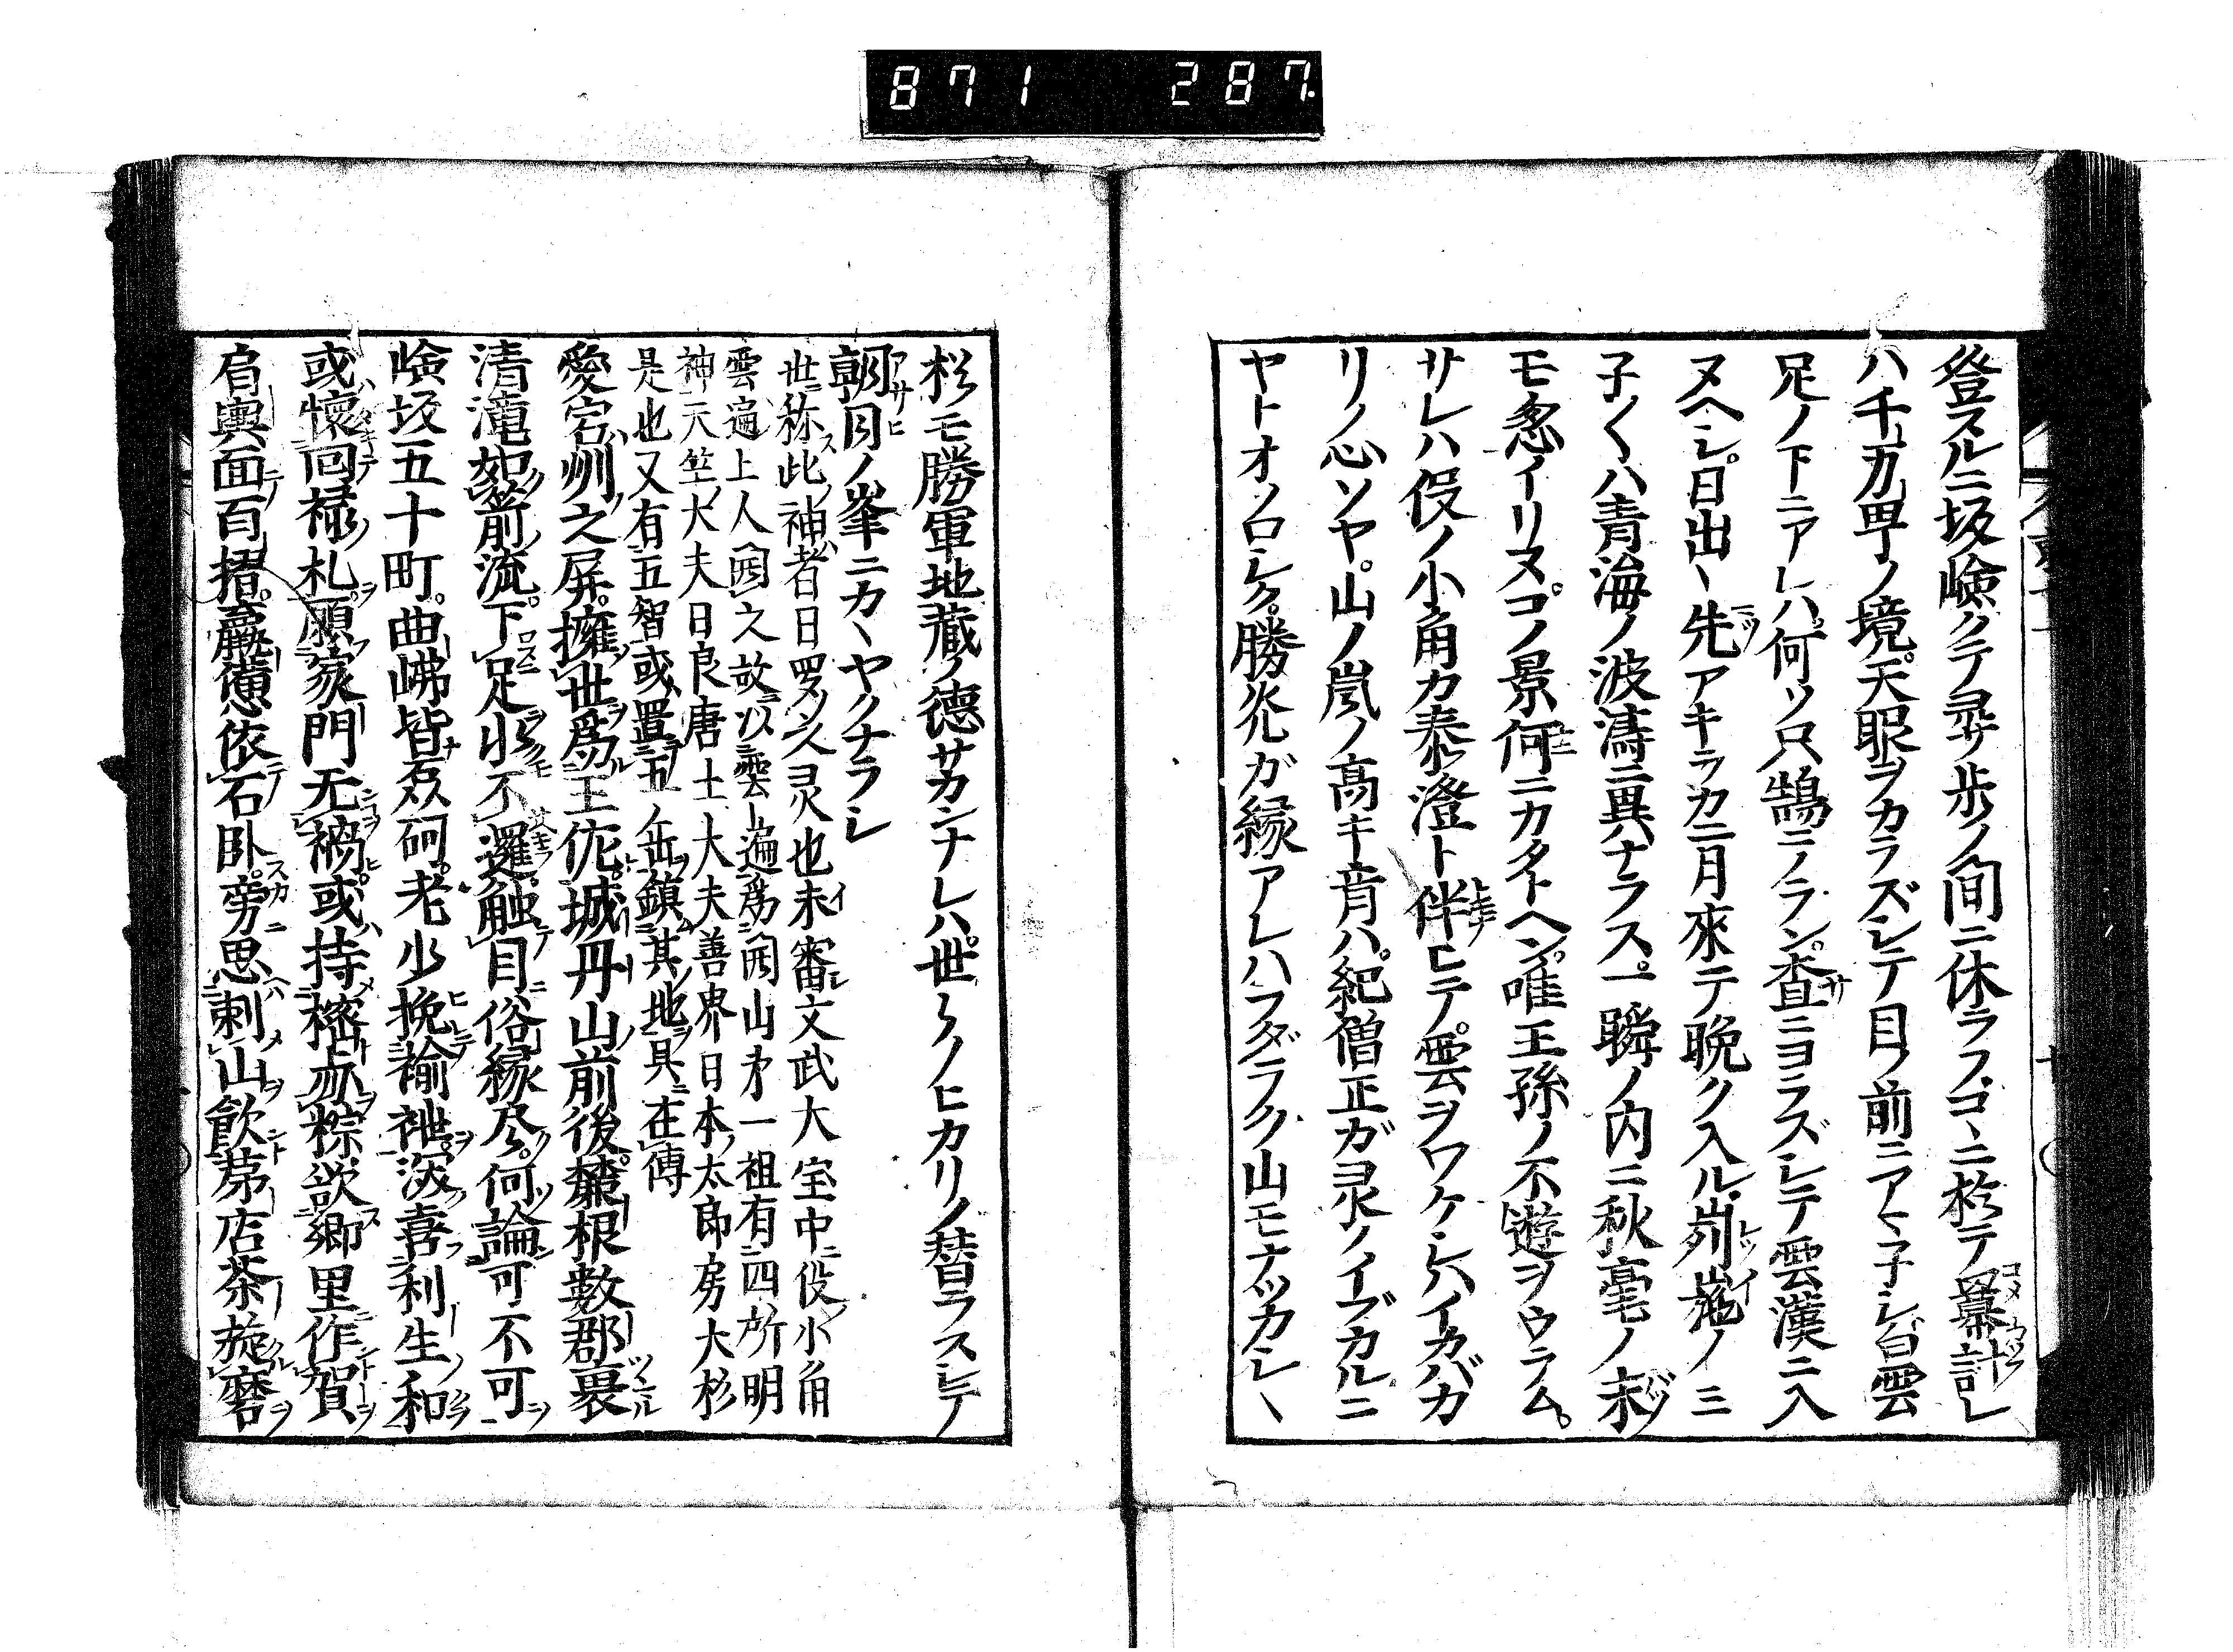 871 287
登スルニ坂嶮クテ尋サ歩ノ間ニ休ラフコヽニ於テ冪計レ
ハ千コカ甲ノ境天眼ヲカラズシテ目ノ前ニアヽ子シ白雲
足ノ下ニアレハ何ソ只鵠ニノラン査ニヨラズシテ雲漢ニ入
ヌヘシ日出ヽ先アキラカニ月來テ晩ク入ル峛崺ノミ
子〱ハ青海ノ波濤ニ異ハナラス一瞬ノ内ニ秋毫ノ末
モ怱イリヌコノ景何ニカタトヘン唯王孫ノ不遊ヲウラム
サレハ役ノ小角カ泰澄ト伴ヒテ雲ヲワケシハイカバカ
リノ心ソヤ山ノ嵐ノ高キ音ハ紀僧正ガ灵ノイブカルニ
ヤトオソロシク勝炎ガ縁アレハフダラク山モナツカシヽ
松モ勝軍地蔵ノ徳サカンナレハ世〱ノヒカリノ替ラスシテ
朝日ノ峯ニカヽヤクナラシ
世称此神者日罗久灵也未審文武大宝中役小角
雲遍上人開之故以雲上遍為開山才一祖有四所明
神天竺大夫日良唐土大夫善界日本太郎房大杉
是也又有五智或置五缶鎮其地具在傳
愛宕州之屏擁世為王佐城丹山前後麓根数郡畏
清滝如箭流下足氷不邏触目俗縁尽何論可不可
嶮坂五十町曲岪皆磊砢老少挽褕袣深喜利生和
或懐回禄札願家門无禍或持樒与粽欲郷里作賀
肩輿面百摺羸憊依石臥旁思剌山飲茅店茶旋磨